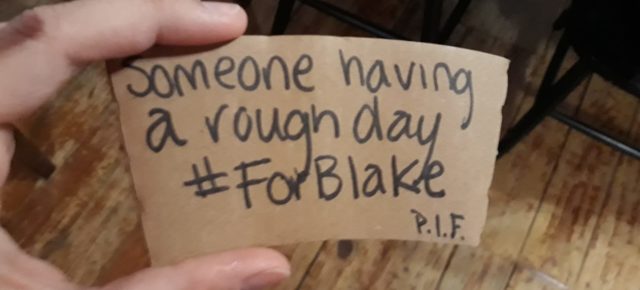 Someone having
a rough day
#ForBlake
P.I.F.